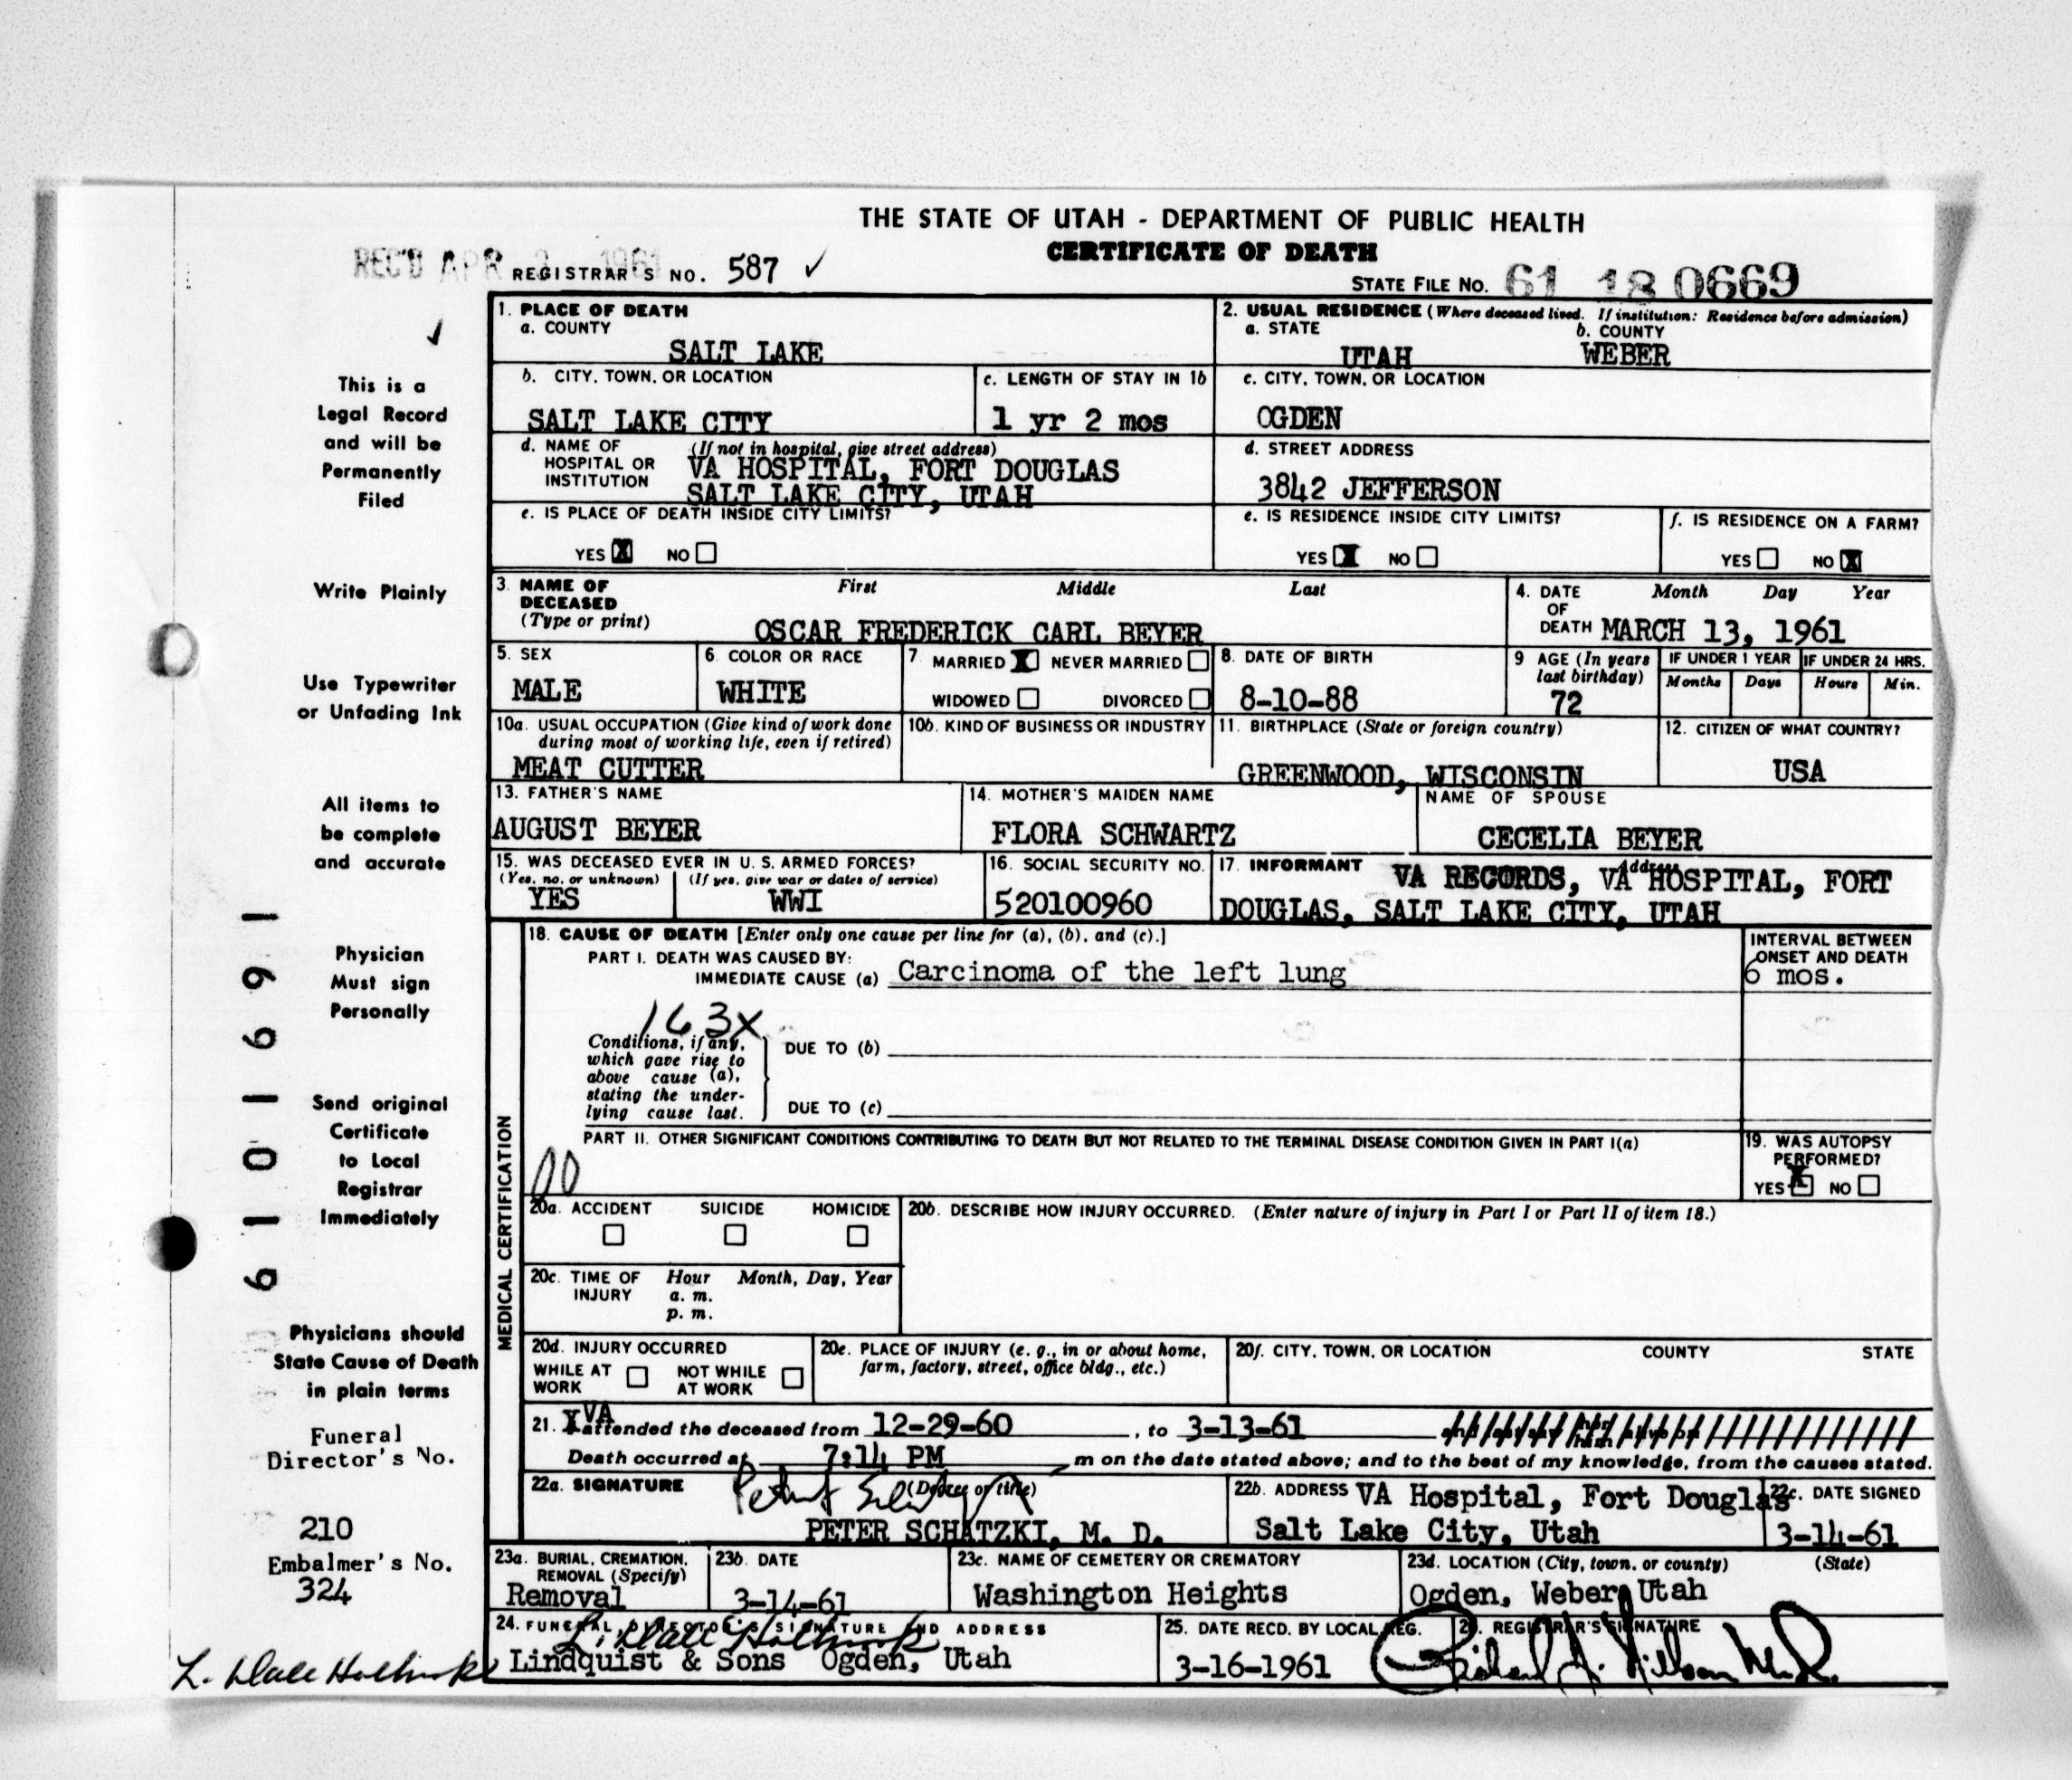 THE STATE OF UTAH - DEPARTMENT OF PUBLIC HEALTH
CERTIFICATE OF DEATH
REC'D APR 1961 REGISTRAR'S NO. 587 ✓
STATE FILE NO. 61 18 0669
1. PLACE OF DEATH
a. COUNTY
SALT LAKE
2. USUAL RESIDENCE (Where deceased lived. If institution: Residence before admission)
a. STATE b. COUNTY
UTAH WEBER
b. CITY, TOWN, OR LOCATION
SALT LAKE CITY
c. LENGTH OF STAY IN 1b
1 yr 2 mos
c. CITY, TOWN, OR LOCATION
OGDEN
d. NAME OF HOSPITAL OR INSTITUTION (If not in hospital, give street address)
VA HOSPITAL, FORT DOUGLAS
SALT LAKE CITY, UTAH
d. STREET ADDRESS
3842 JEFFERSON
e. IS PLACE OF DEATH INSIDE CITY LIMITS?
YES X NO
e. IS RESIDENCE INSIDE CITY LIMITS?
YES X NO
f. IS RESIDENCE ON A FARM?
YES NO X
3. NAME OF DECEASED (Type or print) First Middle Last
OSCAR FREDERICK CARL BEYER
4. DATE OF DEATH Month Day Year
MARCH 13, 1961
5. SEX
MALE
6. COLOR OR RACE
WHITE
7 MARRIED X NEVER MARRIED
WIDOWED DIVORCED
8. DATE OF BIRTH
8-10-88
9 AGE (In years last birthday)
72
IF UNDER 1 YEAR IF UNDER 24 HRS.
Months Days Hours Min.
10a. USUAL OCCUPATION (Give kind of work done
during most of working life, even if retired)
MEAT CUTTER
10b. KIND OF BUSINESS OR INDUSTRY
11. BIRTHPLACE (State or foreign country)
GREENWOOD, WISCONSIN
12. CITIZEN OF WHAT COUNTRY?
USA
13. FATHER'S NAME
AUGUST BEYER
14. MOTHER'S MAIDEN NAME
FLORA SCHWARTZ
NAME OF SPOUSE
CECELIA BEYER
15. WAS DECEASED EVER IN U. S. ARMED FORCES?
(Yes, no, or unknown) (If yes, give war or dates of service)
YES WWI
16. SOCIAL SECURITY NO.
520100960
17. INFORMANT Address
VA RECORDS, VA HOSPITAL, FORT
DOUGLAS, SALT LAKE CITY, UTAH
MEDICAL CERTIFICATION
18. CAUSE OF DEATH [Enter only one cause per line for (a), (b), and (c).]
PART I. DEATH WAS CAUSED BY:
IMMEDIATE CAUSE (a) Carcinoma of the left lung
INTERVAL BETWEEN
ONSET AND DEATH
6 mos.
163X
Conditions, if any,
which gave rise to
above cause (a),
stating the under-
lying cause last.
DUE TO (b)
DUE TO (c)
PART II. OTHER SIGNIFICANT CONDITIONS CONTRIBUTING TO DEATH BUT NOT RELATED TO THE TERMINAL DISEASE CONDITION GIVEN IN PART I(a)
00
19. WAS AUTOPSY
PERFORMED?
YES X NO
20a. ACCIDENT SUICIDE HOMICIDE
20b. DESCRIBE HOW INJURY OCCURRED. (Enter nature of injury in Part I or Part II of item 18.)
20c. TIME OF INJURY Hour Month, Day, Year
a. m.
p. m.
20d. INJURY OCCURRED
WHILE AT WORK NOT WHILE AT WORK
20e. PLACE OF INJURY (e. g., in or about home,
farm, factory, street, office bldg., etc.)
20f. CITY, TOWN, OR LOCATION COUNTY STATE
21. VA attended the deceased from 12-29-60, to 3-13-61
Death occurred at 7:14 PM m on the date stated above; and to the best of my knowledge, from the causes stated.
22a. SIGNATURE (Degree or title)
PETER SCHATZKI, M. D.
22b. ADDRESS VA Hospital, Fort Douglas
Salt Lake City, Utah
22c. DATE SIGNED
3-14-61
23a. BURIAL, CREMATION,
REMOVAL (Specify)
Removal
23b. DATE
3-14-61
23c. NAME OF CEMETERY OR CREMATORY
Washington Heights
23d. LOCATION (City, town, or county) (State)
Ogden, Weber, Utah
24. FUNERAL DIRECTOR'S SIGNATURE AND ADDRESS
L. Dale Holbrook
Lindquist & Sons Ogden, Utah
25. DATE RECD. BY LOCAL REG.
3-16-1961
26. REGISTRAR'S SIGNATURE
This is a
Legal Record
and will be
Permanently
Filed
Write Plainly
Use Typewriter
or Unfading Ink
All items to
be complete
and accurate
Physician
Must sign
Personally
Send original
Certificate
to Local
Registrar
Immediately
Physicians should
State Cause of Death
in plain terms
Funeral
Director's No.
210
Embalmer's No.
324
L. Dale Holbrook
61101691